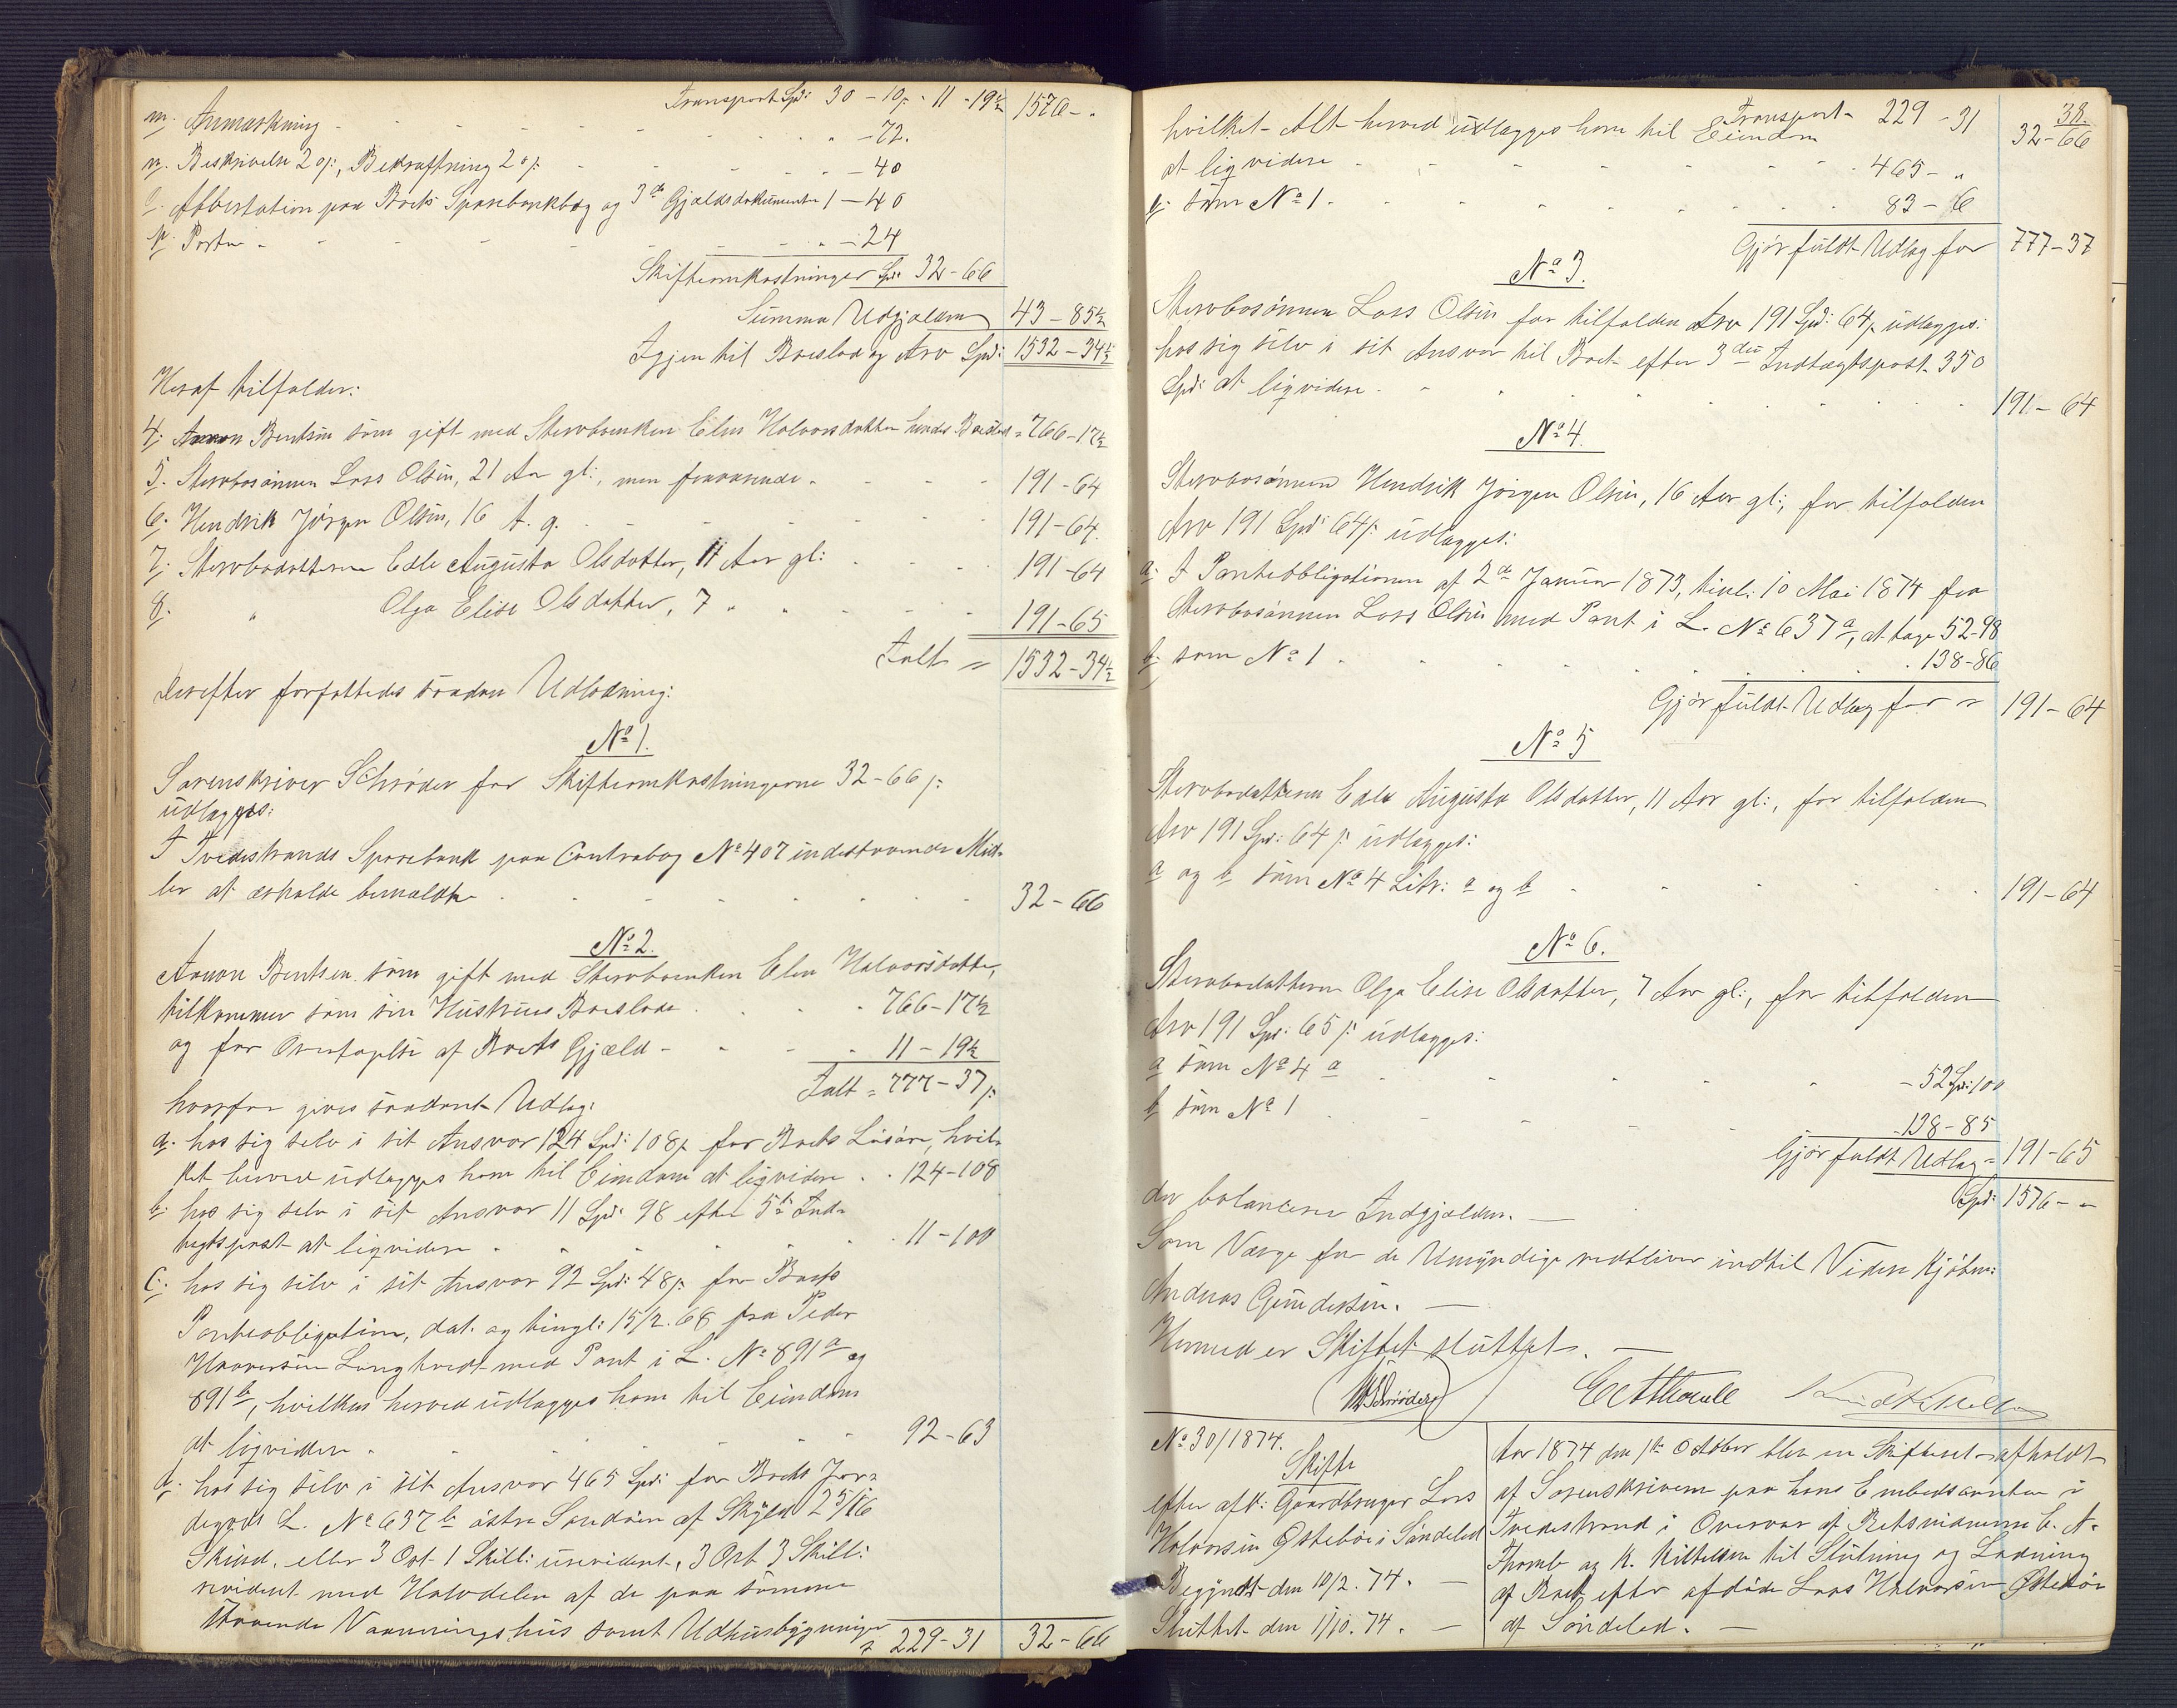 Transport Spd: 30 - 10/: - 11 - 19½ 1576 - "
m. Anmærkning " - 72.
n. Beskrivelse 2 o/:, Bekræftning 2 o/: " - 40
o. Attestation paa Boets Sparebankbog og 3de Gjældsdokumenter 1 - 40
p. Porto " - 24
Skifteomkostninger Spd: 32 - 66
Summa Udgjælden 43 - 85½
Igjen til Boeslod og Arv Spd: 1532 - 34½
Heraf tilfalder:
4. Anon Bentsen som gift med Stervboenken Elen Halvorsdatter hendes Boeslod = 766 - 17½
5. Stervbosönnen Lars Olsen, 21 Aar gl:, men fraværende 191 - 64
6. Hendrik Jörgen Olsen, 16 A. g. 191 - 64.
7. Stervbodatteren Edle Augusta Olsdatter, 11 Aar gl: 191 - 64
8. " Olga Elise Olsdatter, 7 " " 191 - 65
Ialt = 1532 - 34½
Derefter forfattedes saadan Udlodning:
No 1.
Sorenskriver Schrøder for Skifteomkostningerne 32 - 66 /:
udlægges:
I Tvedestrands Sparebank paa Contrabog No 407 indestaaende Mid-
ler at erholde bemældte 32 - 66
No 2.
Anon Bentsen som gift med Stervboenken Elen Halvorsdatter,
tilkommer som sin Hustrues Boeslod 766 - 17½
og for Overtagelse af Boets Gjæld - 11 - 19½
Ialt = 777 - 37 /:
hvorfor gives saadant Udlæg:
a. hos sig selv i sit Ansvar 124 Spd: 108 /: for Boets Lösöre, hvil-
ket herved udlægges ham til Eiendom at liqvidere 124 - 108
b. hos sig selv i sit Ansvar 11 Spd: 98 efter 5te Ind-
tægtspost at liqvidere 11 - 100
c. hos sig selv i sit Ansvar 92 Spd: 48 /: for Boets
Panteobligation, dat. og tingl: 15/2. 68 fra Peder
Langtvedt med Pant i L. No 891 a og
891 b, hvilken herved udlægges ham til Eiendom
at liqvidere 92 - 63
d. hos sig selv i sit Ansvar 465 Spd: for Boets Jor-
degods L. No 637 b östre Sandöen af Skyld 2 5/16
Skind, eller 3 Ort 1 Skill: urevideret, 3 Ort 3 Skill:
revideret med Halvdelen af de paa samme
staaende Vaaningshus samt Udhusbygninger
229 - 31 32 - 66
38.
Transport - 229 - 31 32 - 66
hvilket Alt herved udlægges ham til Eiendom
at liqvidere 465 - "
e. som No 1. 83 - 6
Gjør fuldt Udlæg for 777 - 37
No 3.
Stervbosönnen Lars Olsen for tilfalden Arv 191 Spd: 64 /: udlægges:
hos sig selv i sit Ansvar til Boet efter 3die Indtægtspost 350
Spd: at liqvidere 191 - 64
No 4.
Stervbosönnen Hendrik Jörgen Olsen, 16 Aar gl:, for tilfalden
Arv 191 Spd: 64 /: udlægges:
a. I Panteobligationen af 2de Januar 1873, tinl: 10 Mai 1874 fra
Stervbosönnen Lars Olsen med Pant i L. No 637 a, at tage 52 - 98
b. som No 1 138 - 86
Gjør fuldt Udlæg for = 191 - 64
No 5
Stervbodatteren Edle Augusta Olsdatter, 11 Aar gl:, for tilfalden
Arv 191 Spd: 64 /: udlægges:
a og b som No 4 Litr: a og b 191 - 64
No 6.
Stervbodatteren Olga Elise Olsdatter, 7 Aar gl:, for tilfalden
Arv 191 Spd: 65 /: udlægges:
a som No 4 a - 52 Spd: 100
b som No 1 138 - 85
Gjør fuldt Udlæg = 191 - 65
Spd: 1576 - "
der balancerer Indgjælden. —
Som Værge for de Umyndige vedbliver indtil Videre Kjöbm:
Andreas Gundersen. —
Hermed er Skiftet sluttet. —
Schrøder
No 30/1874.
Skifte
efter afd: Gaardbruger Lars
Halvorsen Østeböe i Söndeled
Begyndt den 10/2. 74. —
Sluttet den 1/10. 74. —
Aar 1874 den 1te October blev en Skifteret afholdt
af Sorenskriveren paa hans Embedscontor i
Tvedestrand i Overvær af Retsvidnerne E. A.
Thomle og K. Kittelsen til Slutning og Lodning
af Boet efter afdöde Lars Halvorsen Østeböe
af Söndeled. —